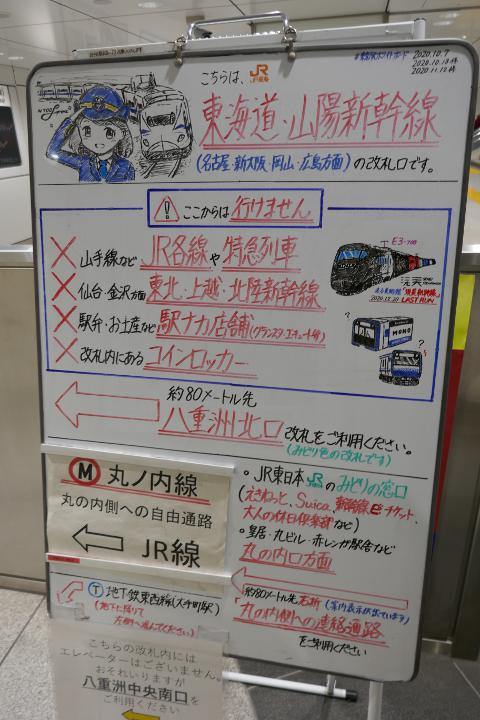 2020.10.7
2020.10.18 終
2020.11.12 終
こちらは、JR JR東海
東海道・山陽新幹線
(名古屋・新大阪・岡山・広島方面)の改札口です。
N700S
ここからは 行けません
× 山手線など JR各線や特急列車
× 仙台・金沢方面 東北・上越・北陸新幹線
× 駅弁・お土産など 駅ナカ店舗(グランスタ・エキュート等)
× 改札内にある コインロッカー
E3-700
LAST RUN
MONO
約80メートル先
八重洲北口 改札をご利用ください。
(みどり色の改札です)
M 丸ノ内線
丸の内側への自由通路
JR線
・JR東日本 JR のみどりの窓口
(えきねっと、Suica、新幹線eチケット、
大人の休日倶楽部など)
・皇居・丸ビル・赤レンガ駅舎など
丸の内口方面
約80メートル先右折 (案内表示状出ています)
「丸の内側への連絡通路」
をご利用ください
T 地下鉄東西線(大手町駅)
(地下に降りて
左側へ進んでください)
こちらの改札内には
エレベーターはございません。
おそれいりますが
八重洲中央南口を
ご利用ください